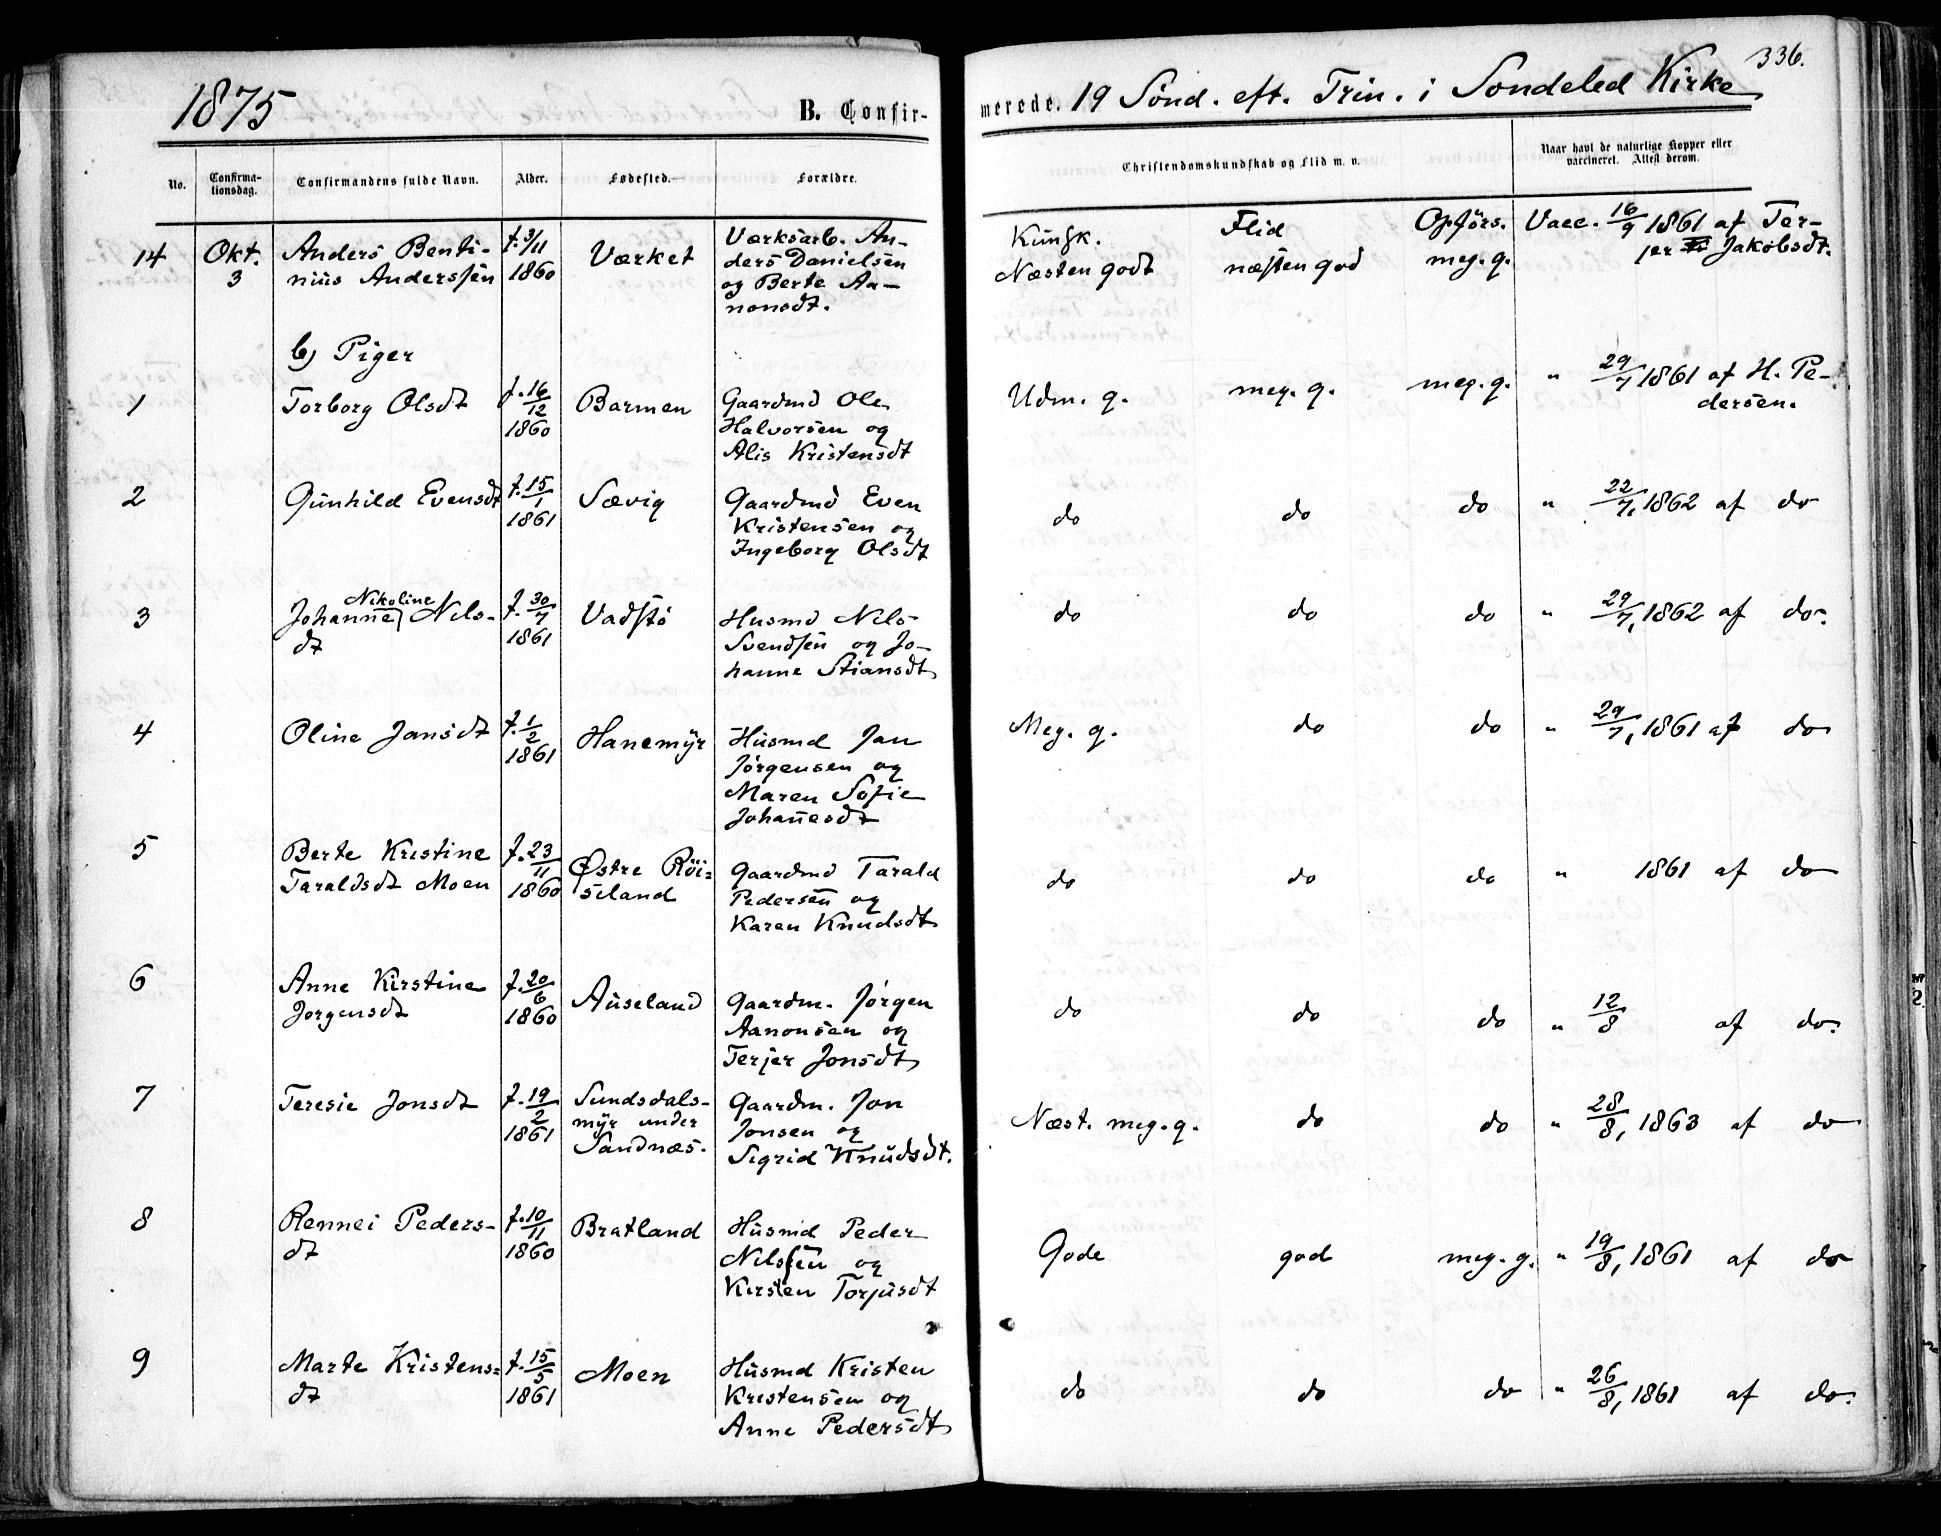 336.
1875 B. Confirmerede. 19 Sönd. eft. Trin. i Sondeled Kirke
No. Confirmationsdag. Confirmandens fulde Navn. Alder. Fødested. Forældre. Christendomskundskab og Flid m. v. Naar havt de naturlige Kopper eller vaccineret. Attest derom.
14 Okt. 3 Anders Bentinius Anderssen f. 3/11 1860 Værket Værksarb. Anders Danielsen og Berte Aanonsdt. Kunsk. Næsten godt Flid næsten god Opförs. meg. g. Vacc. 16/9 1861 af Terjer Jakobsdt.
b) Piger
1 Torborg Olsdt f. 16/12 1860 Barmen Gaardmd Ole Halvorsen og Alis Kristensdt Udm. g. meg. g. meg. g. " 29/7 1861 af H. Pedersen.
2 Gunhild Evensdt f. 15/1 1861 Sævig Gaardmd Even Kristensen og Ingeborg Olsdt do do do " 22/7, 1862 af do
3 Johanne Nikoline Nilsdt f. 30/7 1861 Vadstö Husmd Nils Svendsen og Johanne Stiansdt do do do " 29/7, 1862 af do.
4 Oline Jansdt f. 1/2 1861 Hanemyr Husmd Jan Jörgensen og Maren Sofie Johanesdt Meg. g. do do " 29/7, 1861 af do
5 Berte Kristine Taraldsdt Moen f. 23/11 1860 Østre Röiseland Gaardmd Tarald Pedersen og Karen Knudsdt do do do " 1861 af do
6 Anne Kirstine Jorgensdt f. 20/6 1860 Auseland Gaardm. Jörgen Aanonsen og Terjer Jonsdt do do do " 12/8 af do.
7 Teresie Jonsdt f. 19/2 1861 Sundsdalsmyr under Sandnæs. Gaardm. Jon Jonsen og Sigrid Knudsdt. Næst. meg. g. do do " 28/8, 1863 af do
8 Rennei Pedersdt f. 10/11 1860 Bratland Husmd Peder Nilssen og Kirsten Torjusdt Gode god meg. g. " 19/8, 1861 af do
9 Marte Kristensdt f. 15/5 1861 Moen Husmd Kristen Kristensen og Anne Pedersdt do do do " 26/8, 1861 af do.